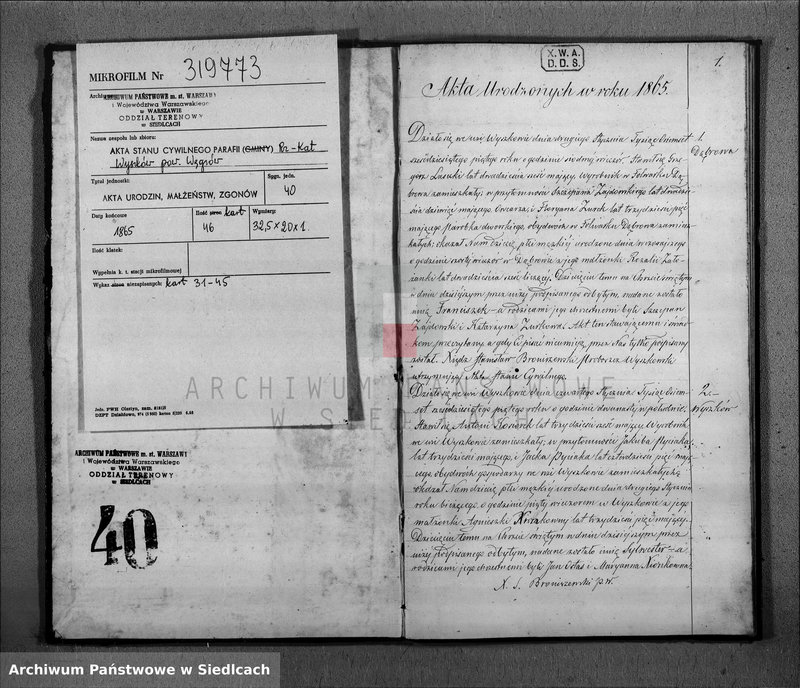 MIKROFILM Nr 319773
Archiwum ARCHIWUM PAŃSTWOWE m. st. WARSZAWY
i Województwa Warszawskiego
w WARSZAWIE
ODDZIAŁ TERENOWY
w SIEDLCACH
Nazwa zespołu lub zbioru:
AKTA STANU CYWILNEGO PARAFII (GMINY) Rz-Kat
Wyszków pow. Węgrów
Tytuł jednostki:
AKTA URODZIN, MAŁŻEŃSTW, ZGONÓW
Sygn. jedn.
40
Daty końcowe
1865
Ilość stron kart
46
Wymiary:
32,5 x 20 x 1
Ilość klatek:
Wypełnia k. t. stacji mikrofilmowej
Wykaz stron niezapisanych: kart 31-45
ARCHIWUM PAŃSTWOWE m. st. WARSZAWY
i Województwa Warszawskiego
w WARSZAWIE
ODDZIAŁ TERENOWY
w SIEDLCACH
40
X. W. A.
D. D. S.
1.
Akta Urodzonych w roku 1865.
1.
Dąbrowa
Działo się we wsi Wyszkowie dnia drugiego Stycznia Tysiąc Ośmset
sześćdziesiątego piątego roku o godzinie siódmej wieczór. Stawił się Grze-
gorz Lasecki lat dwadzieścia sześć mający Wyrobnik w Folwarku Dą-
browa zamieszkały, w przytomności Szczepana Zajdowskiego lat dwadzie-
ścia dziewięć mającego Owczarza, i Floryana Zurek lat trzydzieści pięć
mającego Parobka dworskiego, obydwóch w Folwarku Dąbrowa zamiesz-
kałych; okazał Nam dziecię płci męzkiej urodzone dnia wczorajszego
o godzinie szóstej wieczór w Dąbrowie z jego małżonki Rozalii Zale-
zianki lat dwadzieścia sześć liczącej. Dziecięciu temu na Chrzcie świętym
w dniu dzisiejszym przez niżej podpisanego odbytym, nadane zostało
imię Franciszek – a rodzicami jego chrzestnemi byli Szczepan
Zajdowski i Katarzyna Zurkowa. Akt ten stawającemu i świad-
kom przeczytany, a gdy Ci pisać nieumieją przez Nas tylko podpisany
został. Xiądz Stanisław Broniszewski Proboszcz Wyszkowski
utrzymujący Akta Stanu Cywilnego.
2.
Wyszków
Działo się we wsi Wyszkowie dnia czwartego Stycznia Tysiąc Ośm-
set sześćdziesiątego piątego roku o godzinie dwunastej w południe.
Stawił się Antoni Kosiorek lat trzydzieści sześć mający Wyrobnik
w wsi Wyszkowie zamieszkały, w przytomności Jakóba Pyciaka
lat trzydzieści mającego, i Jacka Pyciaka lat czterdzieści pięć mają-
cego, obydwóch gospodarzy we wsi Wyszkowie zamieszkałych;
okazał Nam dziecię płci męzkiej urodzone dnia drugiego Stycznia
roku bieżącego o godzinie piątej wieczorem w Wyszkowie z jego
małżonki Agnieszki lat trzydzieści pięć mającej.
Dziecięciu temu na Chrzcie świętym w dniu dzisiejszym przez
niżej podpisanego odbytym, nadane zostało imię Sylwester – a
rodzicami jego chrzestnemi byli Jan i Maryanna
X. S. Broniszewski p. W.
ARCHIWUM PAŃSTWOWE
W SIEDLCACH
Archiwum Państwowe w Siedlcach